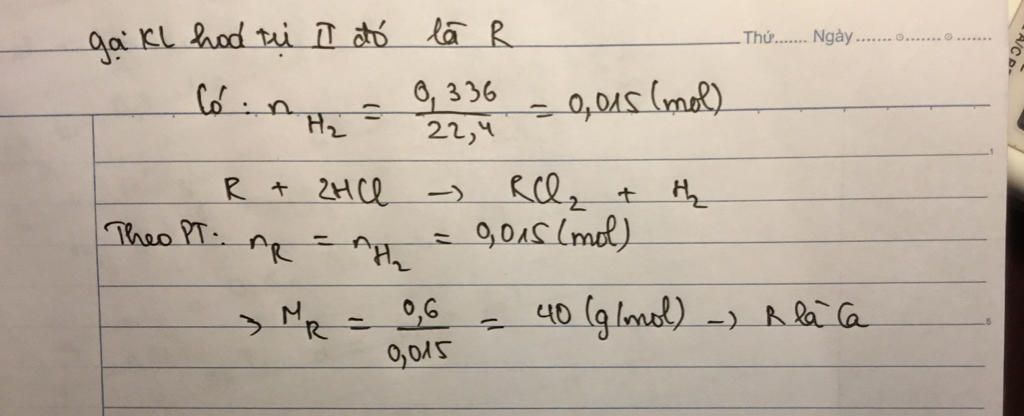 gọi KL hoá trị II đó là R
Thứ....... Ngày.......
Có: n H₂ = 0,336 / 22,4 = 0,015 (mol)
R + 2HCl → RCl₂ + H₂
Theo PT: n R = n H₂ = 0,015 (mol)
→ M R = 0,6 / 0,015 = 40 (g/mol) → R là Ca